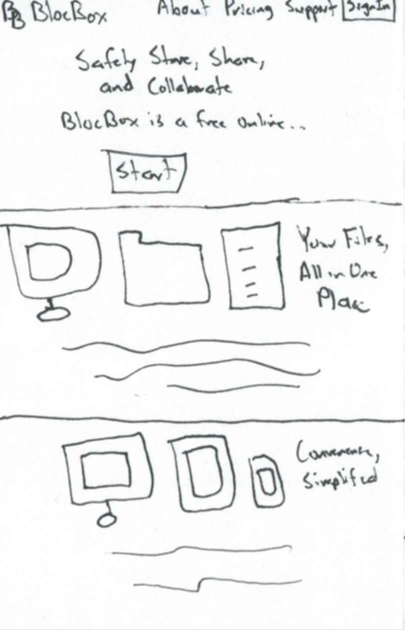 BB BlocBox About Pricing Support Sign In
Safely Store, Share,
and Collaborate
BlocBox is a free online..
Start
Your Files,
All in One
Place
Convenience,
Simplified